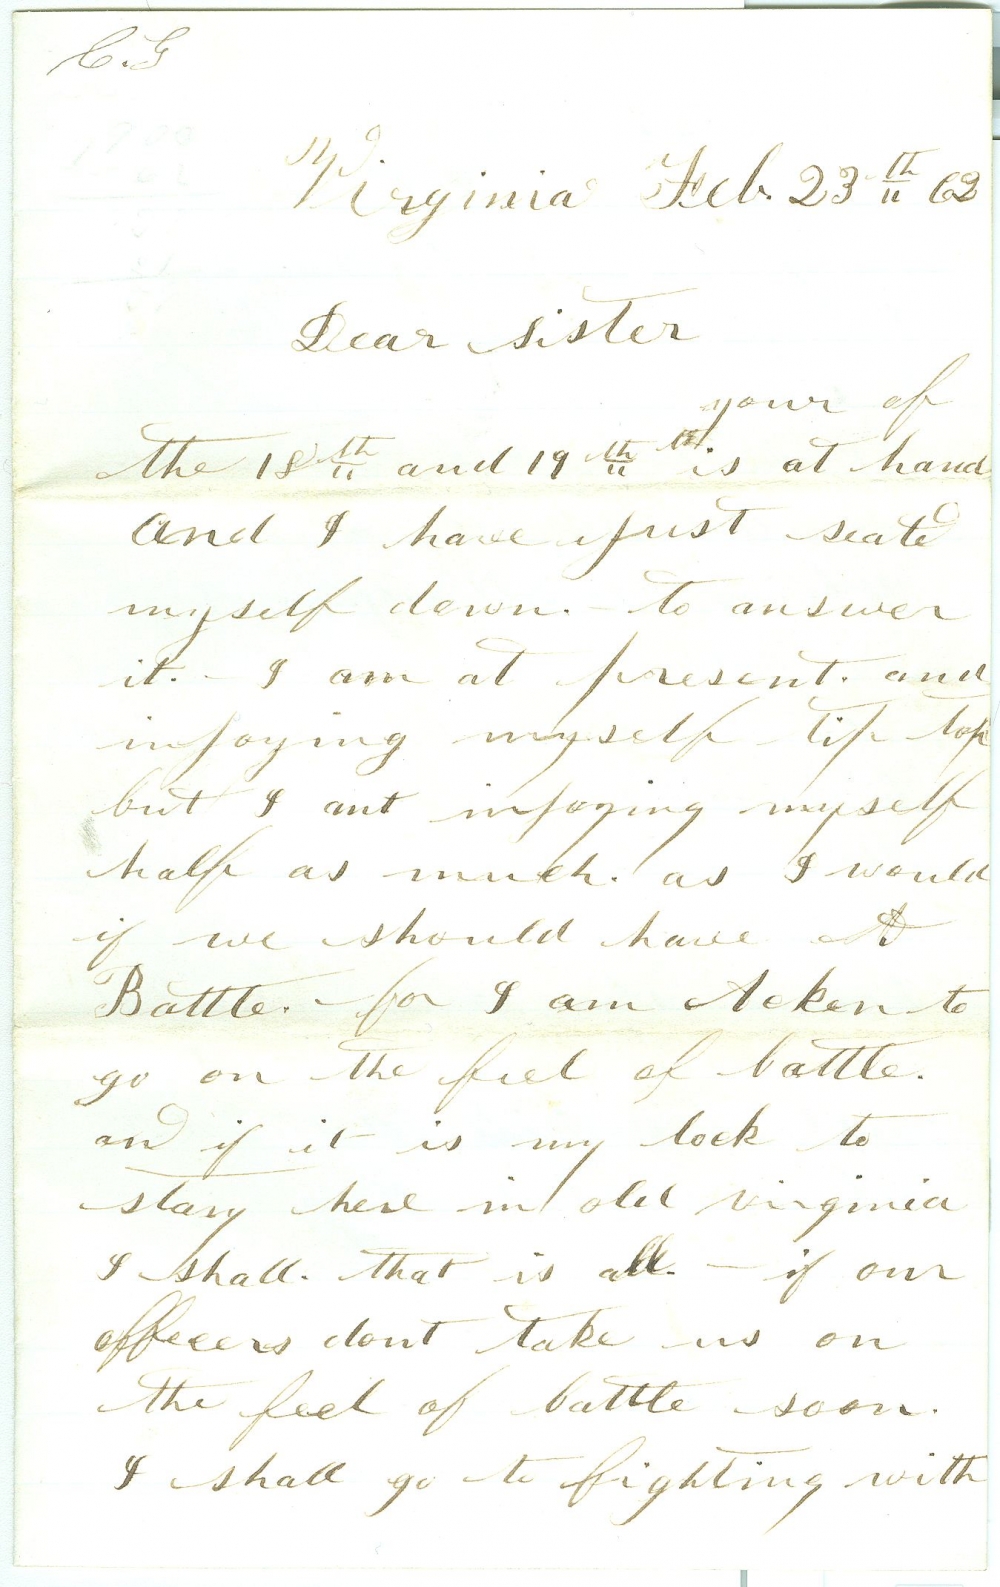 C.G
Virginia Feb. 23th 62
Dear sister
your of
the 18th and 19th is at hand
and I have just seated
myself down. - to answer
it. - I am at present. and
injoying myself tip top
but I ant injoying myself
half as much. as I would
if we should have A
Battle. - for I am Acken to
go on the feel of battle.
and if it is my lock to
stay here in old virginia
I shall. that is all. - if our
officers dont take us on
the feel of battle soon.
I shall go to fighting with